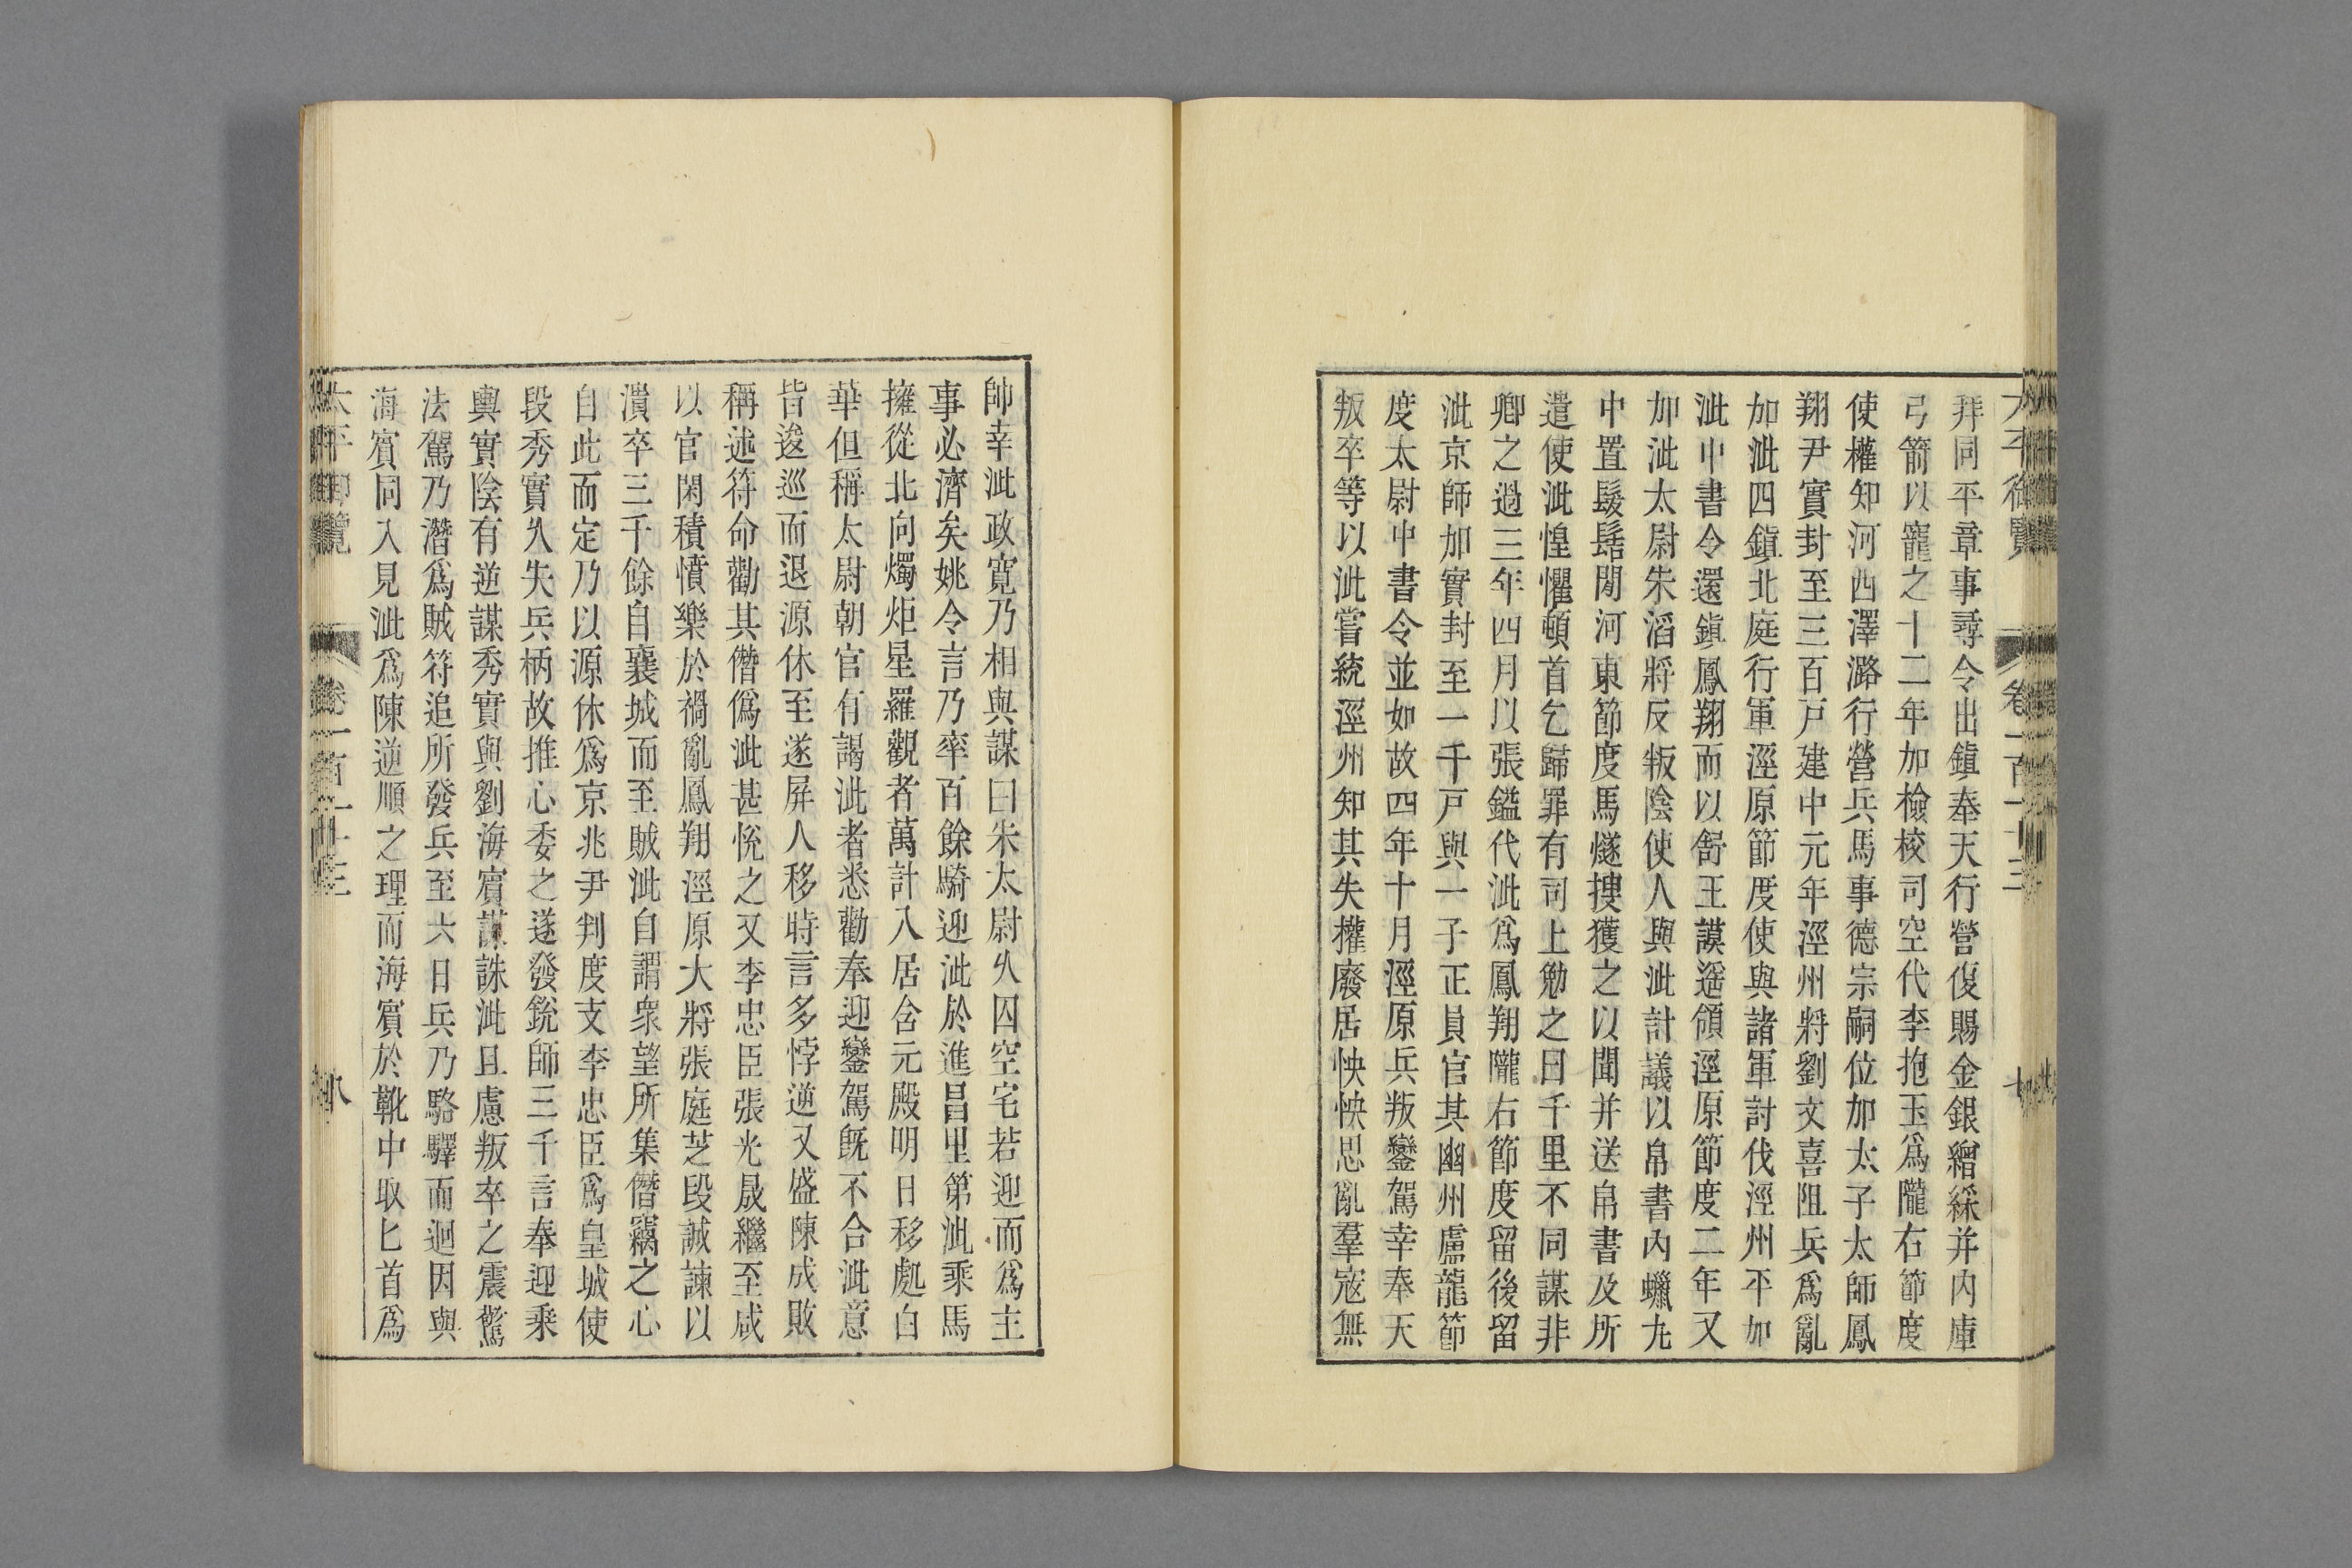 太平御覽 卷一百一十三 七
拜同平章事尋令出鎭奉天行營復賜金銀繒綵并內庫
弓箭以寵之十二年加檢校司空代李抱玉爲隴右節度
使權知河西澤潞行營兵馬事德宗嗣位加太子太師鳳
翔尹實封至三百戸建中元年涇州將劉文喜阻兵爲亂
加泚四鎭北庭行軍涇原節度使與諸軍討伐涇州平加
泚中書令還鎭鳳翔而以舒王謨遥領涇原節度二年又
加泚太尉朱滔將反叛陰使人與泚計議以帛書內蠟丸
中置髮髻閒河東節度馬燧搜獲之以聞并送帛書及所
遣使泚惶懼頓首乞歸罪有司上勉之曰千里不同謀非
卿之過三年四月以張鎰代泚爲鳳翔隴右節度留後留
泚京師加實封至一千戸與一子正員官其幽州盧龍節
度太尉中書令並如故四年十月涇原兵叛鑾駕幸奉天
叛卒等以泚嘗統涇州知其失權廢居怏怏思亂羣寇無
帥幸泚政寛乃相與謀曰朱太尉乆囚空宅若迎而爲主
事必濟矣姚令言乃率百餘騎迎泚於進昌里第泚乘馬
擁從北向燭炬星羅觀者萬計入居含元殿明日移處白
華但稱太尉朝官有謁泚者悉勸奉迎鑾駕旣不合泚意
皆逡巡而退源休至遂屏人移時言多悖逆又盛陳成敗
稱述符命勸其僭僞泚甚悅之又李忠臣張光晟繼至咸
以官閑積憤樂於禍亂鳳翔涇原大將張庭芝段誠諫以
潰卒三千餘自襄城而至賊泚自謂衆望所集僭竊之心
自此而定乃以源休爲京兆尹判度支李忠臣爲皇城使
段秀實乆失兵柄故推心委之遂發銳師三千言奉迎乘
輿實陰有逆謀秀實與劉海賓謀誅泚且慮叛卒之震驚
法駕乃潛爲賊符追所發兵至六日兵乃駱驛而迴因與
海賓同入見泚爲陳逆順之理而海賓於靴中取匕首爲
太平御覽 卷一百一十三 八